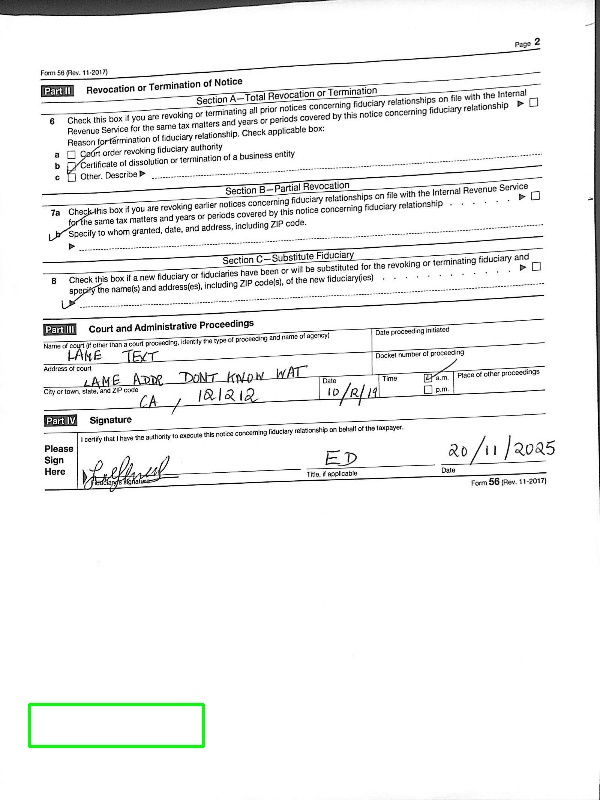 Page 2
Form 56 (Rev. 11-2017)
Part II Revocation or Termination of Notice
Section A—Total Revocation or Termination
6 Check this box if you are revoking or terminating all prior notices concerning fiduciary relationships on file with the Internal
Revenue Service for the same tax matters and years or periods covered by this notice concerning fiduciary relationship ▶ ☐
Reason for termination of fiduciary relationship. Check applicable box:
a ☐ Court order revoking fiduciary authority
b ☑ Certificate of dissolution or termination of a business entity
c ☐ Other. Describe ▶
Section B—Partial Revocation
7a Check this box if you are revoking earlier notices concerning fiduciary relationships on file with the Internal Revenue Service
for the same tax matters and years or periods covered by this notice concerning fiduciary relationship . . . . . . ▶ ☐
b Specify to whom granted, date, and address, including ZIP code.
▶
Section C—Substitute Fiduciary
8 Check this box if a new fiduciary or fiduciaries have been or will be substituted for the revoking or terminating fiduciary and
specify the name(s) and address(es), including ZIP code(s), of the new fiduciary(ies) . . . . . . . . . . . . ▶ ☐
▶
Part III Court and Administrative Proceedings
Name of court (if other than a court proceeding, identify the type of proceeding and name of agency) Date proceeding initiated
LAME TEXT
Address of court Docket number of proceeding
LAME ADDR DONT KNOW WAT
City or town, state, and ZIP code Date Time ☑ a.m. Place of other proceedings
CA , 121212 10/12/19 ☐ p.m.
Part IV Signature
I certify that I have the authority to execute this notice concerning fiduciary relationship on behalf of the taxpayer.
Please
Sign
Here
ED 20/11/2025
Fiduciary's signature Title, if applicable Date
Form 56 (Rev. 11-2017)